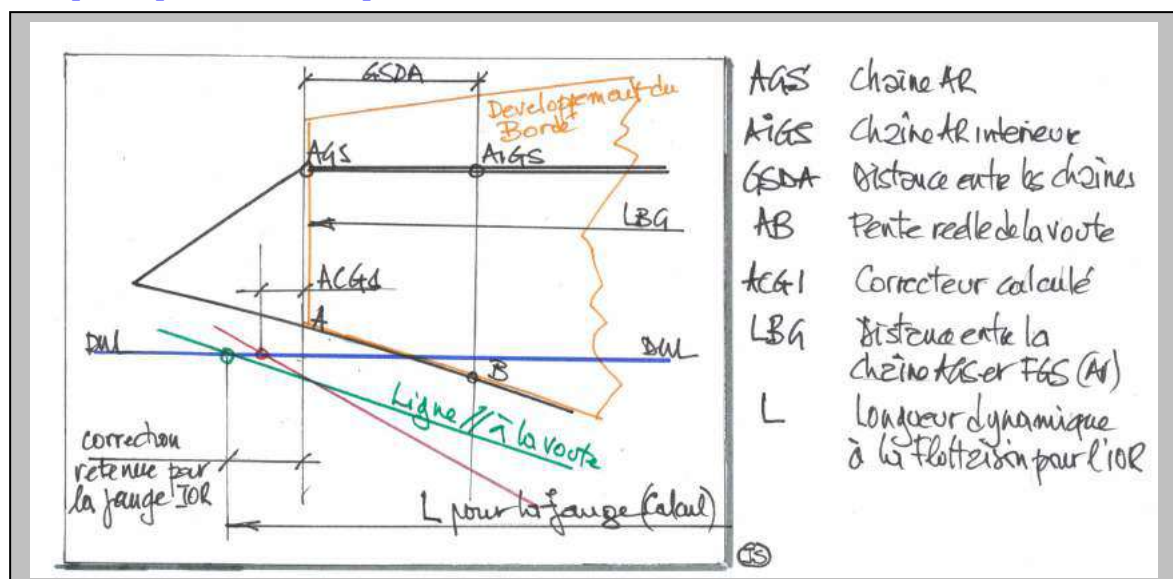 GSDA
Developpement du
Bordé
AGS
AiGS
LBG
ACG1
A
DWL
DWL
B
Ligne // à la voute
correction
retenue par
la jauge IOR
L pour la jauge (Calcul)
AGS Chaîne AR
AiGS Chaîne AR interieure
GSDA Distance entre les chaînes
AB Pente reelle de la voute
ACG1 Correcteur calculé
LBG Distance entre la
chaîne AGS et FGS (AV)
L Longueur dynamique
à la flottaison pour l'IOR